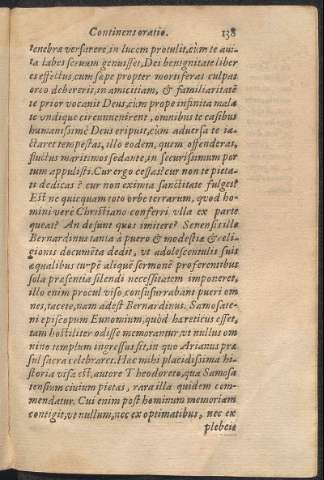 Continens oratio. 138
tenebræ versarere, in lucem protulit, cùm te aui-
ta labes seruum genuisset, Dei benignitate liber
es effectus, cum sæpe propter mortiferas culpas
orco deberere, in amicitiam, & familiaritatẽ
te prior vocauit Deus, cùm prope infinita mala
te vndique circumuenirent, omnibus te casibus
humanissimè Deus eripuit, cùm aduersa te ia-
ctaret tempestas, illo eodem, quem offenderas,
fluctus maritimos sedante, in securissimum por
tum appulisti. Cur ergo cessas? cur non te pieta-
ti dedicas? cur non eximia sanctitate fulges?
Est ne quicquam toto orbe terrarum, quod ho-
mini vere Christiano conferri vlla ex parte
queat? An desunt quos imitere? Senensis ille
Bernardinus tanta à puero & modestiæ & reli-
gionis documẽta dedit, vt adolescentulis suis
æqualibus turpẽ aliquẽ sermonẽ proferentibus
sola præsentia silendi necessitatem imponeret,
illo enim procul viso, consusurrabant pueri om
nes, tacete, nam adest Bernardinus. Samosate-
ni episcopum Eunomium, quòd hæreticus esset,
tam hostiliter odisse memorantur, vt nullus om
nino templum ingressus sit, in quo Arianus præ
sul sacra celebraret. Hac mihi placidissima hi-
storia visa est, autore Theodoreto, quæ Samosa
tensium ciuium pietas, rara illa quidem com-
mendatur. Cui enim post hominum memoriam
contigit, vt nullum, nec ex optimatibus, nec ex
plebeia